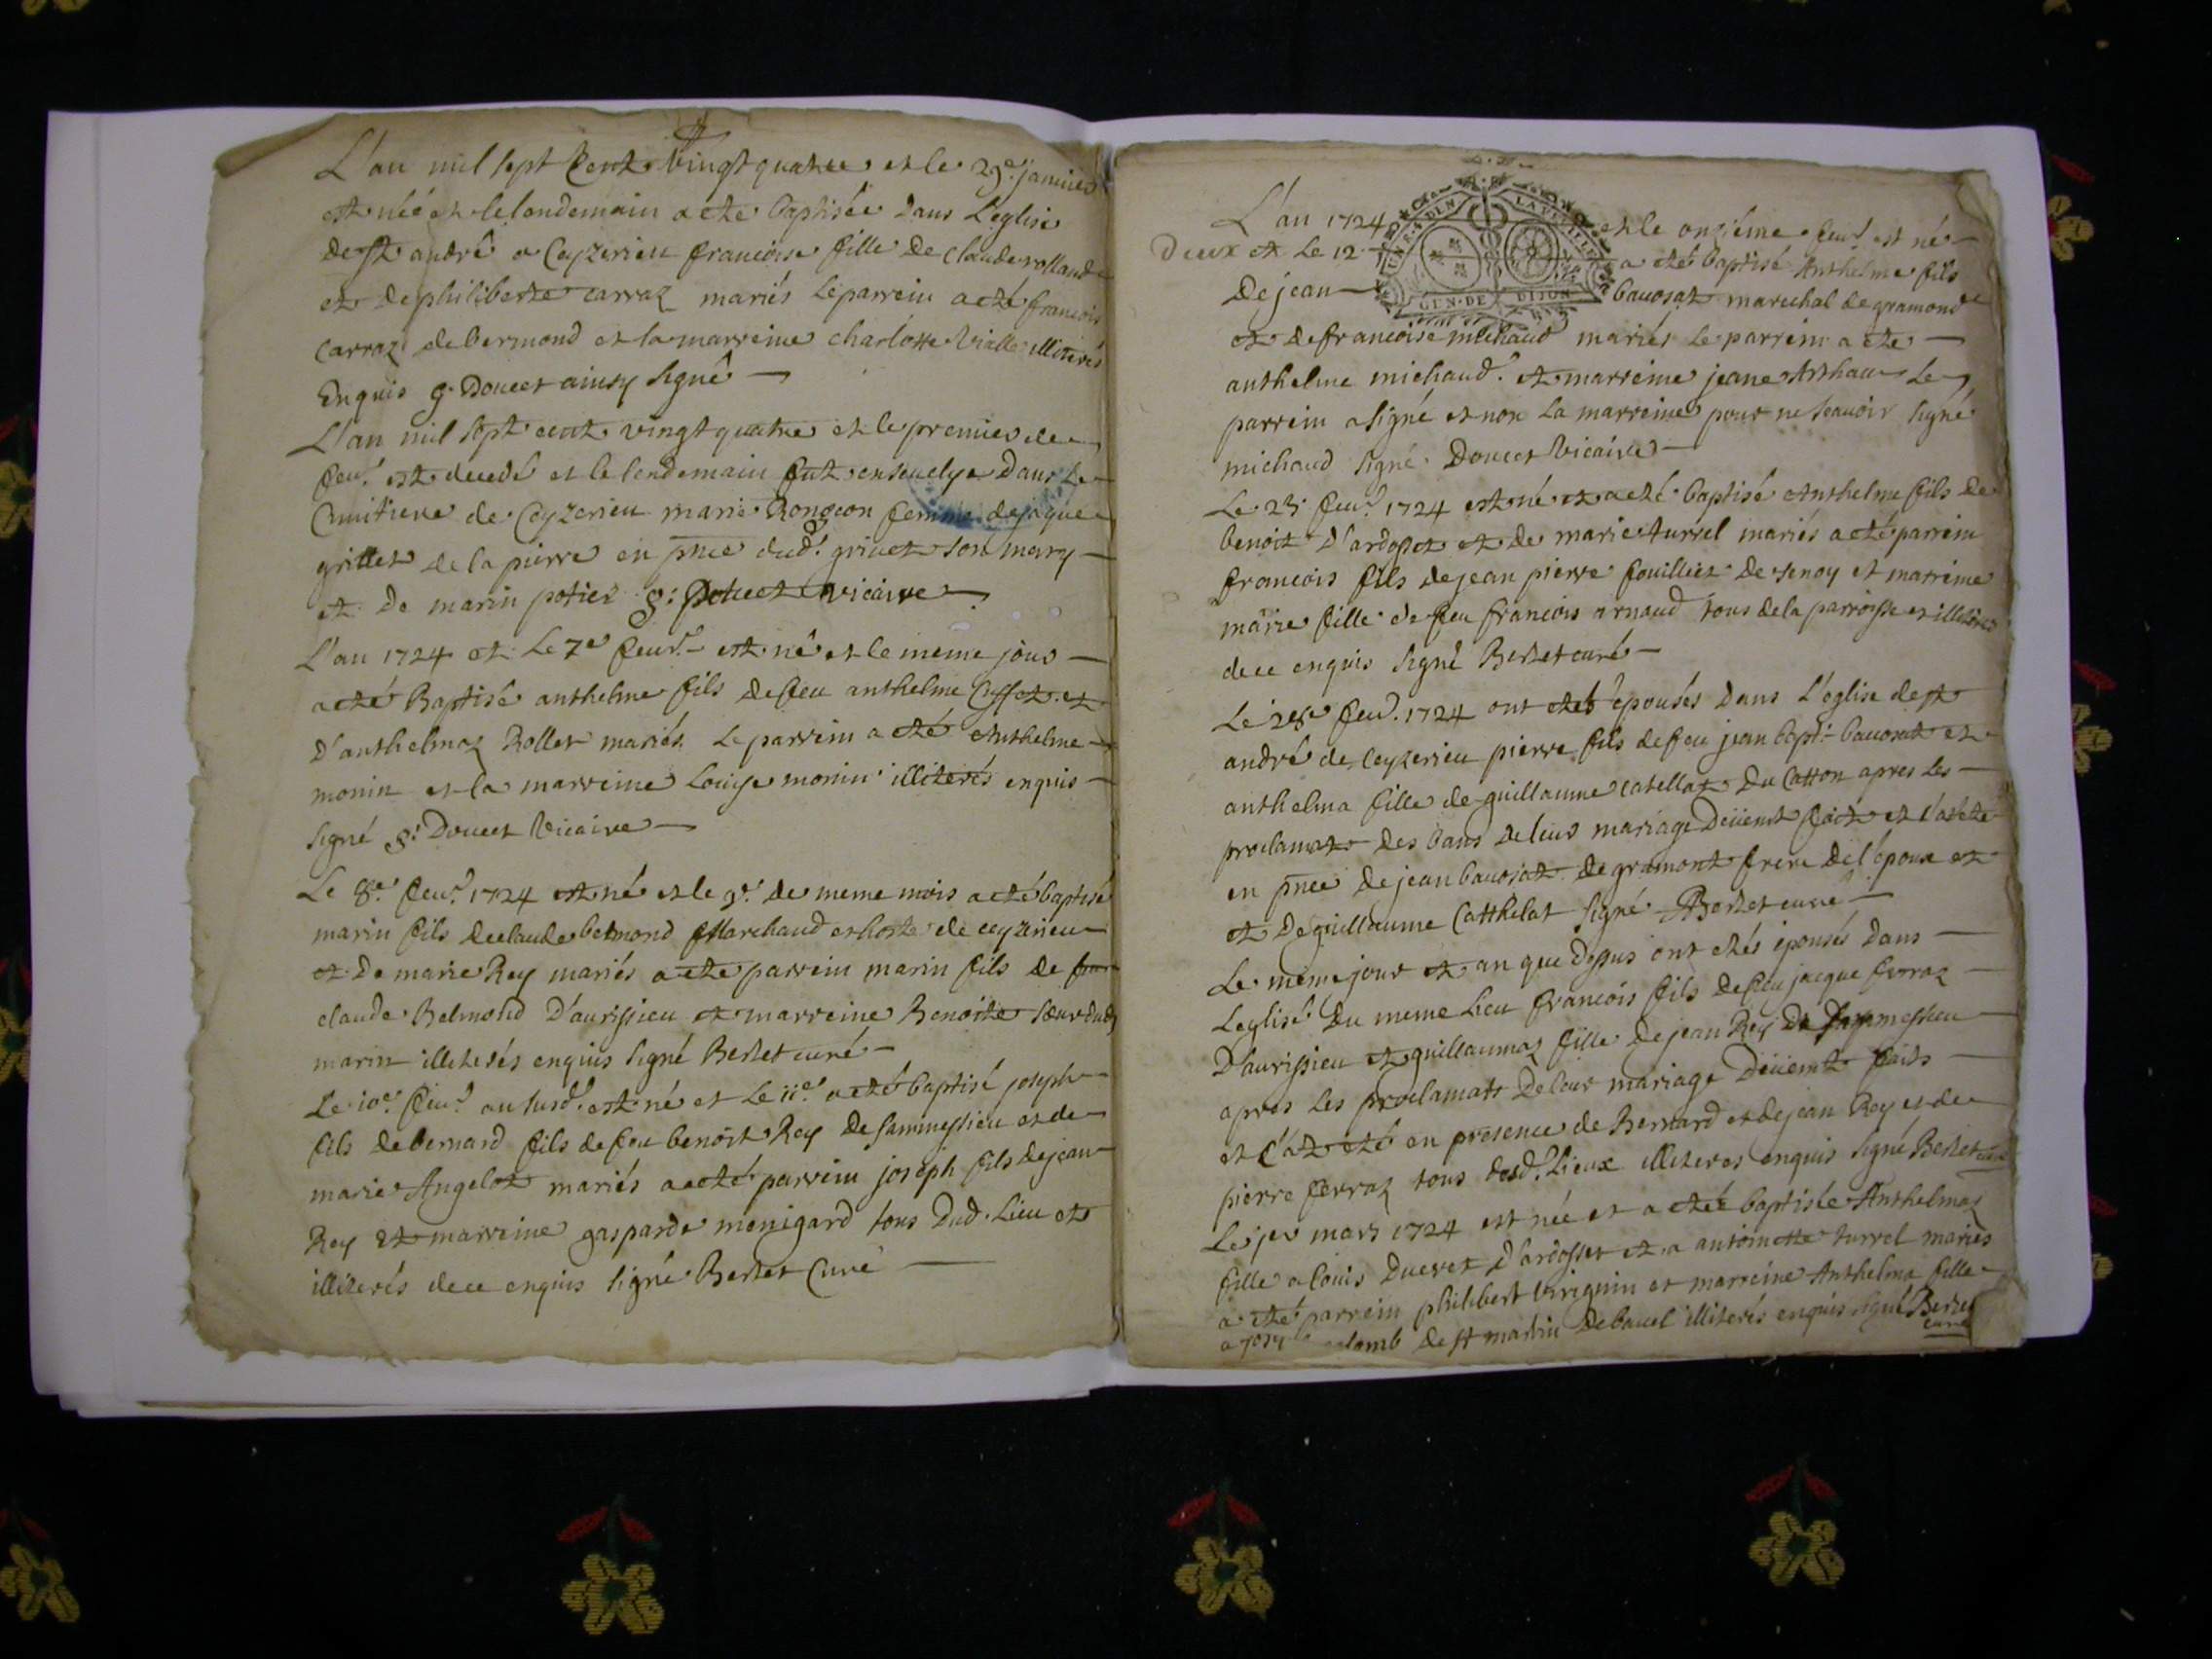 L'an mil sept Cent Vingt quatre et le 29e janvier
est née et le landemain a ete baptisée dans L'eglise
de st andré a Ceyzerieu francoise fille de Claude rolland
et de philiberte carraz mariés le parrein a eté francois
Carraz de bermond et la marreine charlotte Vialle illiterés
Enquis g. Doucet ainsy signé
L'an mil sept cent vingt quatre et le premier de
feur. est decedé et le lendemain fut ensevelye Dans Le
Cimitiere de Ceyzerieu marie Rongeon femme de jaque
grillet de la pierre en pnce dud. grivet son mary
et De marin potier g: Doucet vicaire
L'an 1724 et Le 7e feur. est né et le meme jour
a eté Baptisé anthelme fils de feu anthelme Cusset et
D'anthelmaz Rollet mariés Le parrein a eté Anthelme
monin et la marreine Louise monin illiterés enquis
signé g: Doucet Vicaire
Le 8e feur. 1724 est né et le 9e. de meme mois a eté baptisé
marin fils de claude belmond Marchand et hoste de ceyzerieu
et De marie Rey mariés a ete parrein marin fils de
claude Belmond D'aurissieu et marreine Benoite soeur dud
marin illiterés enquis signé Berlet curé
Le 10e. feur. an susd. est né et Le 11e a eté baptisé joseph
fils de bernard fils de feu benoit Rey De sammessieu et de
marie Angelot mariés a eté parrein joseph fils de jean
Rey et marreine gasparde monigard tous Dud. Lieu et
illiterés de ce enquis signé Berlet Curé
L'an 1724 et le onzième feur. est né
GEN.DE DIJON
Deux et Le 12 a eté baptisé Anthelme fils
De jean bavosat marechal de gramond
et de francoise michaud mariés Le parrein a ete
anthelme michaud. et marreine jeane Le
parrein a signé et non La marreine pour ne scavoir signé
michaud signé Doucet Vicaire
Le 23 feur. 1724 est né et a eté baptisé Anthelme fils De
benoit D'ardosset et de marie turrel mariés a eté parrein
francois fils de jean pierre fouilliet De senoy et marreine
marie fille de feu francois arnaud tous de la parroisse et illiterés
de ce enquis signé Berlet curé
Le 28e feur. 1724 ont etes épousés Dans L'eglise de st
andré de Ceyzerieu pierre fils de feu jean bapt: bavosat et
anthelma fille de guillaume Catellaz Du Catton apres Les
proclamats des bans de leur mariage Düement fait et l'a eté
en pnce De jean bavosat De gramont frere De l'epoux et
et De guillaume Catthelat signé Berlet curé
Le meme jour et an que dessus ont etés epousés Dans
L'eglise Du meme Lieu francois fils De feu jacque ferraz
D'aurissieu et guillaumaz fille De jean Rey De sammessieu
apres Les proclamats De leur mariage Düement faits
et l'a eté en presence de Bernard et de jean Rey et de
pierre ferraz tous desd. Lieux illiteres enquis signé Berlet curé
Le jer mars 1724 est née et a eteé baptisée Anthelmaz
fille a louis Ducret D'ardosset et a antoinette turrel mariés
a eté parrein philibert Viriguin et marreine Anthelma fille
a De st martin De bavel illiterés enquis signé Berlet
curé